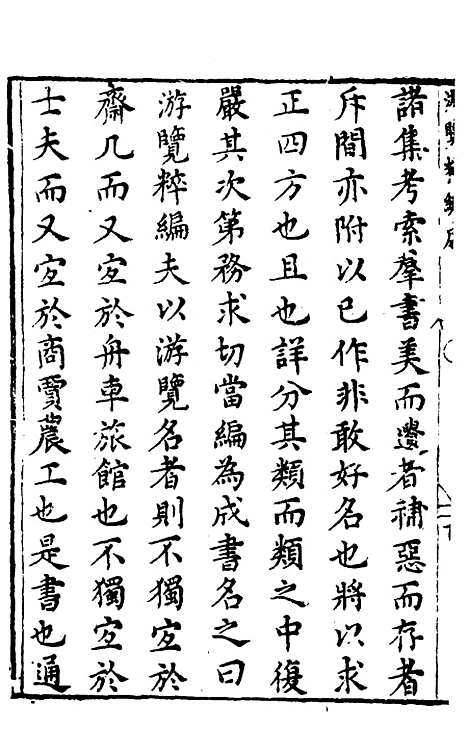 諸集考索羣書美而遺者補惡而存者
斥間亦附以已作非敢好名也將以求
正四方也且也詳分其類而類之中復
嚴其次第務求切當編為成書名之曰
游覽粹編夫以游覽名者則不獨宜於
齋几而又宜於舟車旅館也不獨宜於
士夫而又宜於商賈農工也是書也通